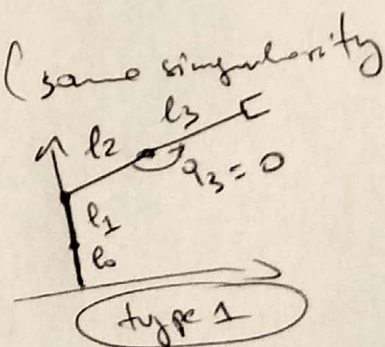 (same singularity
l3
l2
q3 = 0
l1
l0
type 1